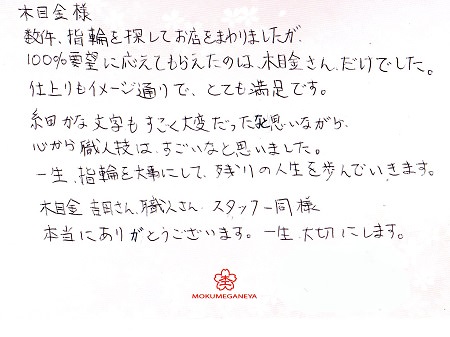 木目金様
数件、指輪を探してお店をまわりましたが、
100%要望に応えてもらえたのは、木目金さんだけでした。
仕上りもイメージ通りで、とても満足です。
細かな文字もすごく大変だったと思いながら、
心から職人技は、すごいなと思いました。
一生、指輪を大事にして、残りの人生を歩んでいきます。
木目金 吉田さん、職人さん、スタッフ一同様
本当にありがとうございます。一生、大切にします。
MOKUMEGANEYA